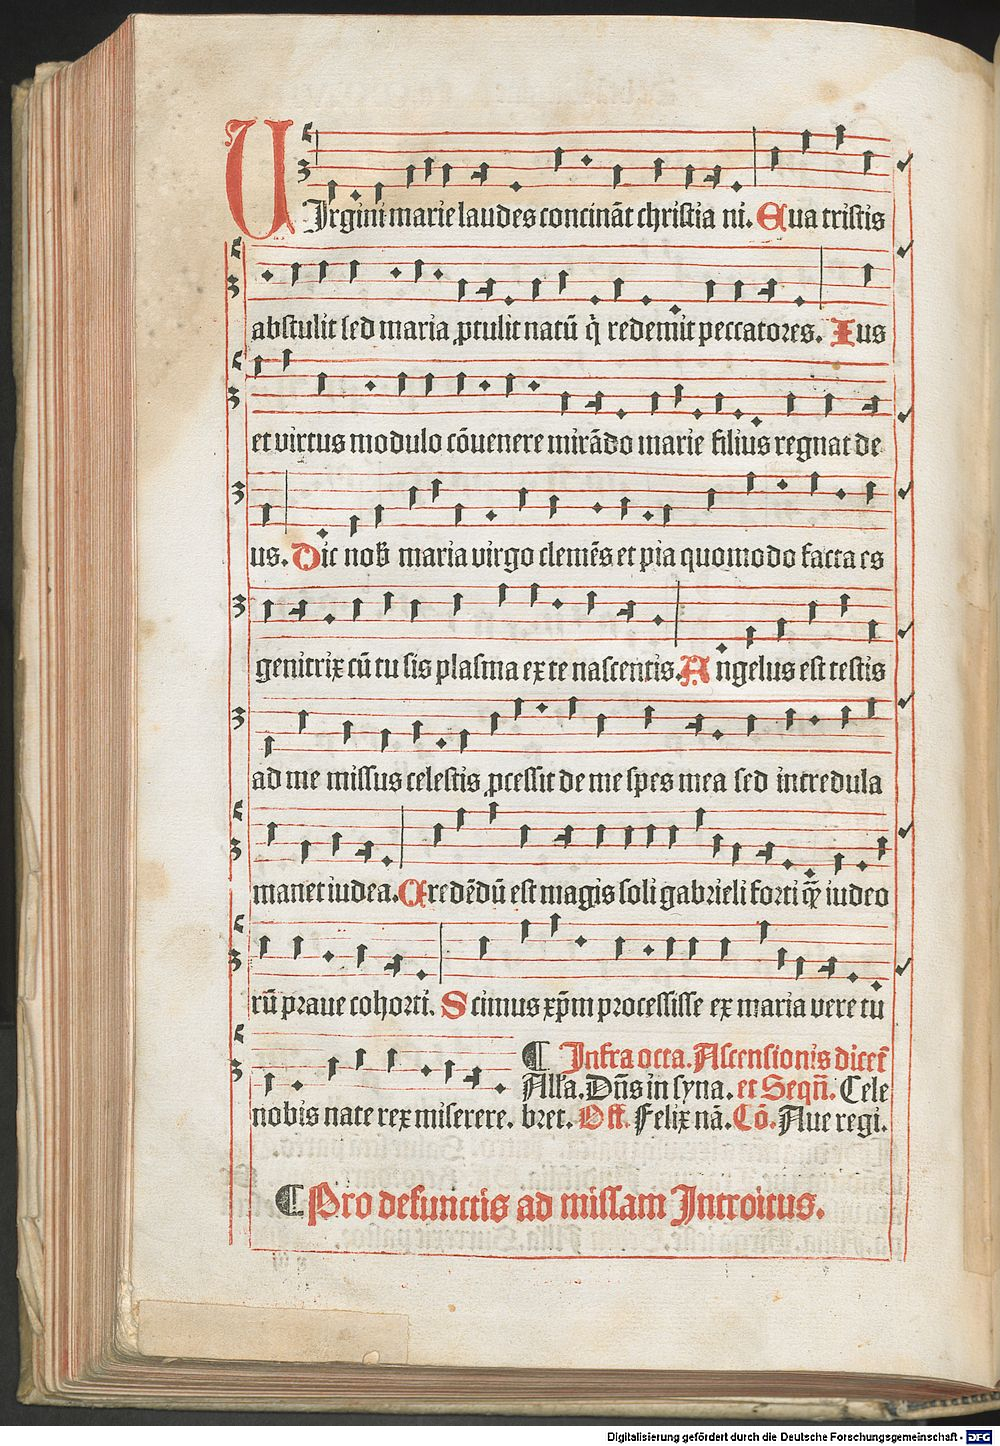 VIrgini marie laudes concināt christia ni. Eua tristis
abstulit sed maria ꝓtulit natū q̇ redemit peccatores. Ius
et virtus modulo cōuenere mirādo marie filius regnat de
us. Dic nob maria virgo clemēs et pia quomodo facta es
genitrix cū tu sis plasma ex te nascentis. Angelus est testis
ad me missus celestis ꝓcessit de me spes mea sed incredula
manet iudea. Credēdū est magis soli gabrieli forti q̄ꝫ iudeo
rū praue cohorti. Scimus xp̄m processisse ex maria vere tu
nobis nate rex miserere.
¶ Infra octa. Ascensionis dicet̄
Alľa. Dn̄s in syna. et Seqn̄. Cele
bret. Off. Felix nā. Cō. Aue regi.
¶ Pro defunctis ad missam Introitus.
Digitalisierung gefördert durch die Deutsche Forschungsgemeinschaft - DFG